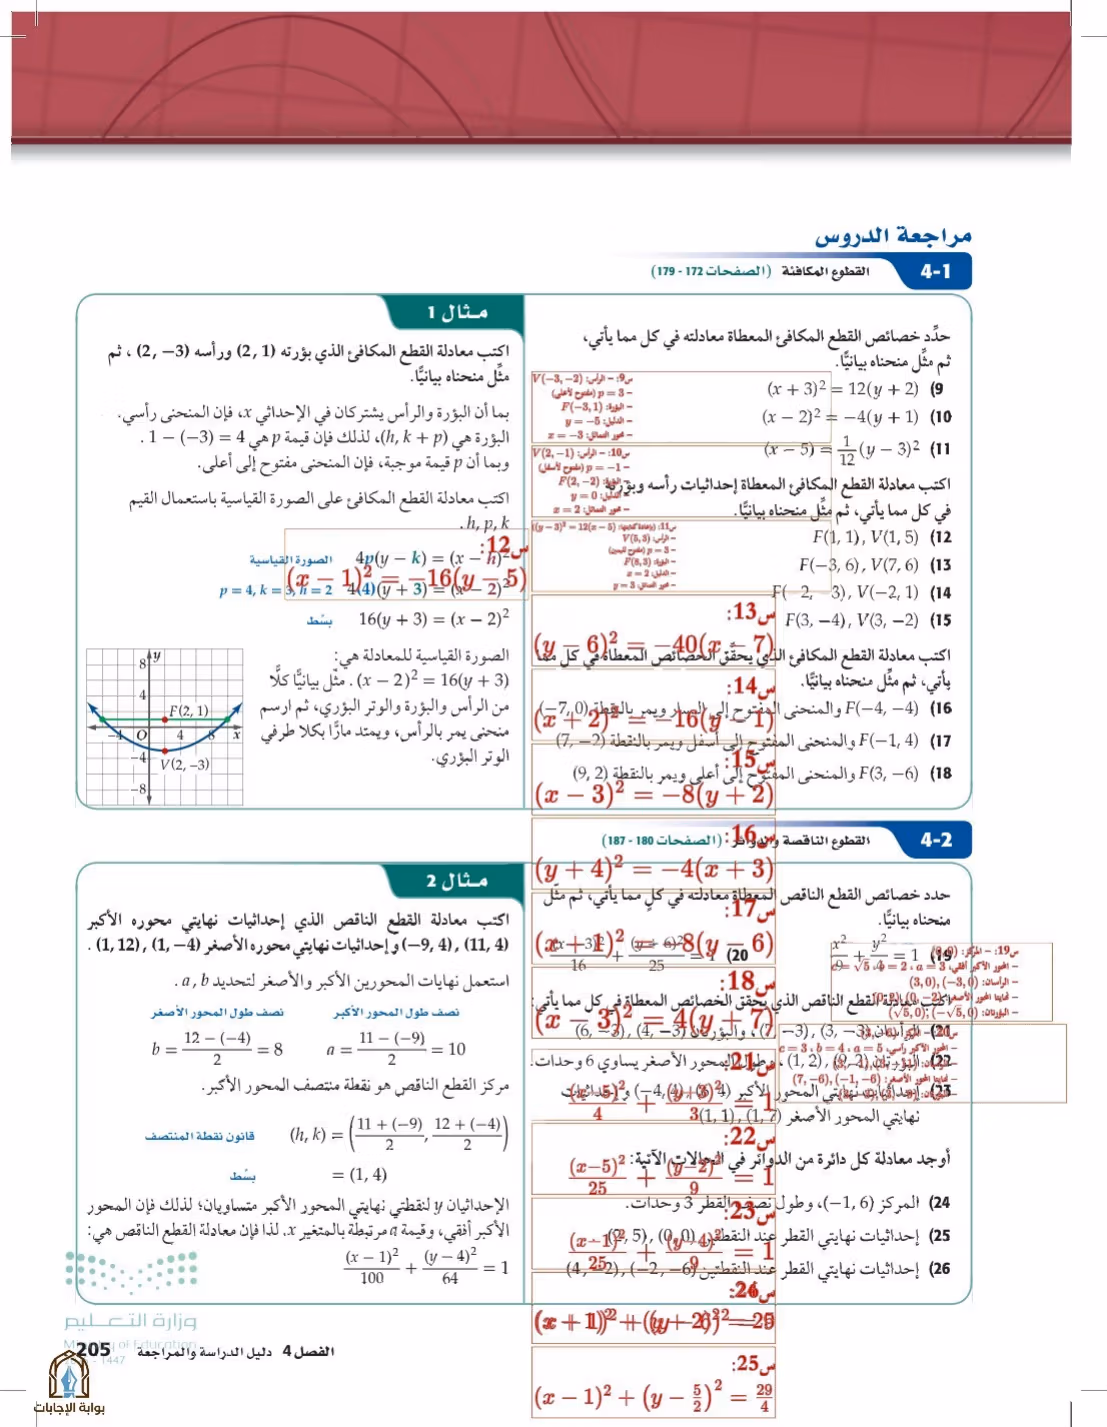 مراجعة الدروس
4-1 القطوع المكافئة (الصفحات 172 - 179)
حدِّد خصائص القطع المكافئ المعطاة معادلته في كل مما يأتي،
ثم مثِّل منحناه بيانيًّا.
9) (x + 3)² = 12(y + 2)
10) (x − 2)² = −4(y + 1)
11) (x − 5) = 1/12 (y − 3)²
اكتب معادلة القطع المكافئ المعطاة إحداثيات رأسه وبؤرته
في كل مما يأتي، ثم مثِّل منحناه بيانيًّا.
12) F(1, 1), V(1, 5)
13) F(−3, 6), V(7, 6)
14) F(−2, −3), V(−2, 1)
15) F(3, −4), V(3, −2)
اكتب معادلة القطع المكافئ الذي يحقِّق الخصائص المعطاة في كل مما
يأتي، ثم مثِّل منحناه بيانيًّا.
16) F(−4, −4) والمنحنى المفتوح إلى اليسار ويمر بالنقطة (−7, 0)
17) F(−1, 4) والمنحنى المفتوح إلى أسفل ويمر بالنقطة (7, −2)
18) F(3, −6) والمنحنى المفتوح إلى أعلى ويمر بالنقطة (9, 2)
س9: – الرأس: V(−3, −2)
– p = 3 (مفتوح لأعلى)
– البؤرة: F(−3, 1)
– الدليل: y = −5
– محور التماثل: x = −3
س10: – الرأس: V(2, −1)
– p = −1 (مفتوح لأسفل)
– البؤرة: F(2, −2)
– الدليل: y = 0
– محور التماثل: x = 2
– الرأس: V(5, 3)
– p = 3 (مفتوح لليمين)
– البؤرة: F(8, 3)
– الدليل: x = 2
– محور التماثل: y = 3
مثال 1
اكتب معادلة القطع المكافئ الذي بؤرته (2, 1) ورأسه (2, −3) ، ثم
مثِّل منحناه بيانيًّا.
بما أن البؤرة والرأس يشتركان في الإحداثي x، فإن المنحنى رأسي.
البؤرة هي (h, k + p)، لذلك فإن قيمة p هي 4 = (−3) − 1 .
وبما أن p قيمة موجبة، فإن المنحنى مفتوح إلى أعلى.
اكتب معادلة القطع المكافئ على الصورة القياسية باستعمال القيم
h, p, k .
4p(y − k) = (x − h)² الصورة القياسية
4(4)(y + 3) = (x − 2)² p = 4, k = 3, h = 2
16(y + 3) = (x − 2)² بسِّط
الصورة القياسية للمعادلة هي:
(x − 2)² = 16(y + 3) . مثِّل بيانيًّا كلًّا
من الرأس والبؤرة والوتر البؤري، ثم ارسم
منحنى يمر بالرأس، ويمتد مارًّا بكلا طرفي
الوتر البؤري.
y
8
4
F(2, 1)
−4 O 4 8 x
−4
V(2, −3)
−8
س12:
(x − 1)² = −16(y − 5)
س13:
(y − 6)² = −40(x − 7)
س14:
(x + 2)² = −16(y − 1)
س15:
(x − 3)² = −8(y + 2)
س16:
(y + 4)² = −4(x + 3)
س17:
(x + 1)² = −8(y − 6)
س18:
(x − 3)² = 4(y + 7)
س21:
(x−5)²/4 + (y+3)²/3 = 1
س22:
(x−5)²/25 + (y−2)²/9 = 1
س23:
(x−1)²/25 + (y−4)²/9 = 1
س25:
(x − 1)² + (y − 5/2)² = 29/4
4-2 القطوع الناقصة والدوائر (الصفحات 180 - 187)
حدد خصائص القطع الناقص المعطاة معادلته في كلٍ مما يأتي، ثم مثّل
منحناه بيانيًّا.
19) x²/9 + y²/4 = 1
20) (x − 3)²/16 + (y + 6)²/25 = 1
اكتب معادلة القطع الناقص الذي يحقق الخصائص المعطاة في كل مما يأتي:
21) الرأسان (7, −3), (3, −3)، والبؤرتان (6, −3), (4, −3)
22) البؤرتان (9, 2), (1, 2)، وطول المحور الأصغر يساوي 6 وحدات.
23) إحداثيات نهايتي المحور الأكبر (−4, 4), (6, 4) وإحداثيات
نهايتي المحور الأصغر (1, 7), (1, 1)
أوجد معادلة كل دائرة من الدوائر في الحالات الآتية:
24) المركز (−1, 6)، وطول نصف القطر 3 وحدات.
25) إحداثيات نهايتي القطر عند النقطتين (0, 0), (2, 5)
26) إحداثيات نهايتي القطر عند النقطتين (−2, −6), (4, −2)
مثال 2
اكتب معادلة القطع الناقص الذي إحداثيات نهايتي محوره الأكبر
(−9, 4), (11, 4) وإحداثيات نهايتي محوره الأصغر (1, −4), (1, 12) .
استعمل نهايات المحورين الأكبر والأصغر لتحديد a, b .
نصف طول المحور الأكبر نصف طول المحور الأصغر
a = 11 − (−9)/2 = 10 b = 12 − (−4)/2 = 8
مركز القطع الناقص هو نقطة منتصف المحور الأكبر.
(h, k) = (11 + (−9)/2, 12 + (−4)/2) قانون نقطة المنتصف
= (1, 4) بسِّط
الإحداثيان y لنقطتي نهايتي المحور الأكبر متساويان؛ لذلك فإن المحور
الأكبر أفقي، وقيمة a مرتبطة بالمتغير x. لذا فإن معادلة القطع الناقص هي:
(x − 1)²/100 + (y − 4)²/64 = 1
وزارة التعليم
Ministry of Education
1447
الفصل 4 دليل الدراسة والمراجعة 205
بوابة الإجابات